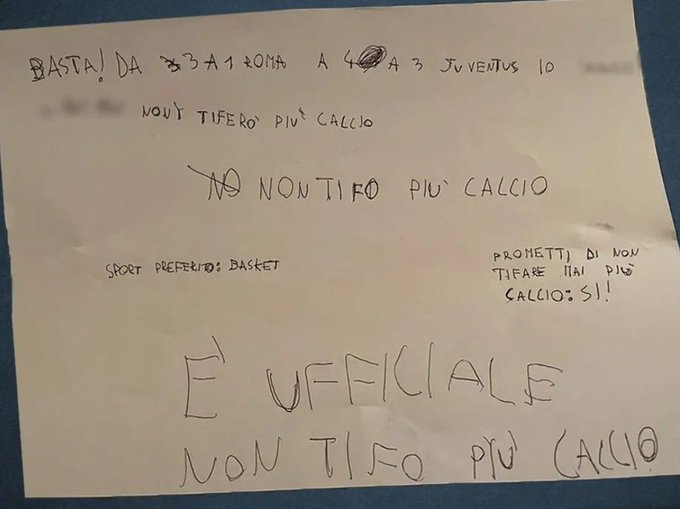 BASTA! DA 3 A 1 ROMA A 4 A 3 JUVENTUS IO
NON TIFERÒ PIÙ CALCIO
NO NON TIFO PIÙ CALCIO
SPORT PREFERITO: BASKET
PROMETTI DI NON
TIFARE MAI PIÙ
CALCIO: SI!
È UFFICIALE
NON TIFO PIÙ CALCIO